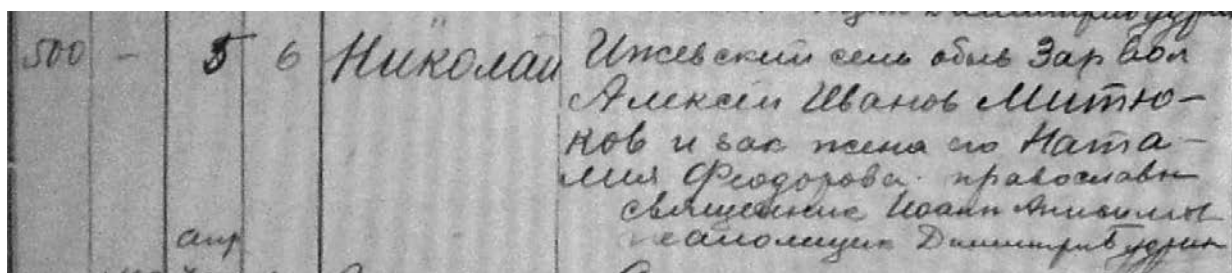 500 - 5 6 Николай Ижевский сельобыв Зар вол
Алексей Иванов Митю-
ков и зак жена его Ната-
лия Феодорова православн
священник Иоанн
апр псаломщик Димитрий Будрин